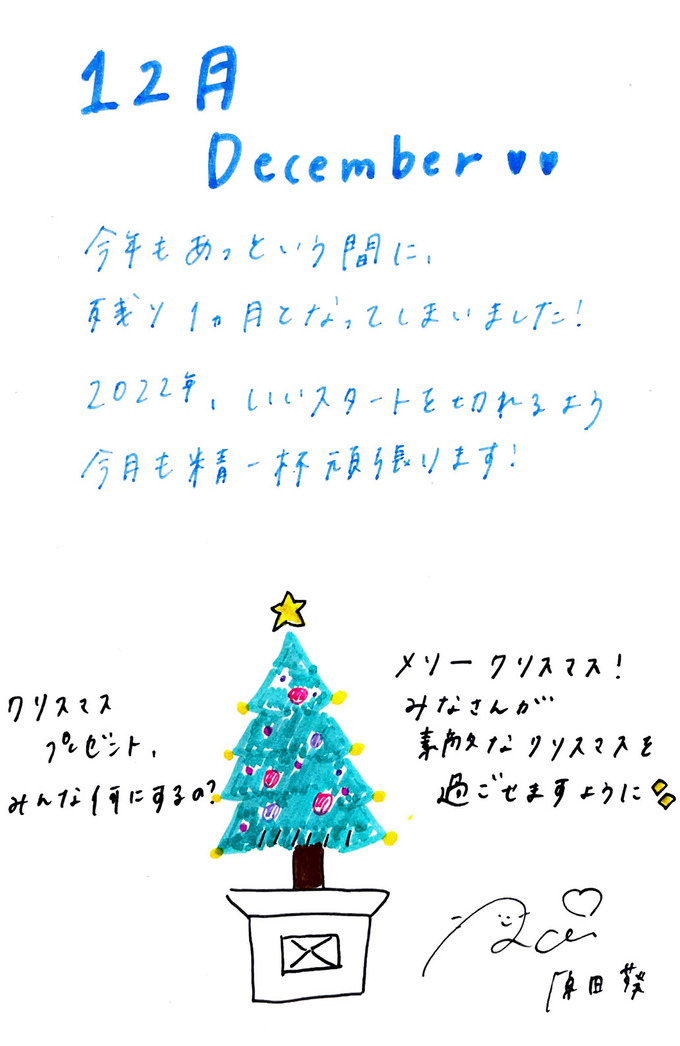 12月
December ♥♥
今年もあっという間に、
残り1ヵ月となってしまいました！
2022年、いいスタートを切れるよう
今月も精一杯頑張ります！
クリスマス
プレゼント、
みんな何にするの？
メリークリスマス！
みなさんが
素敵なクリスマスを
過ごせますように
原田葵